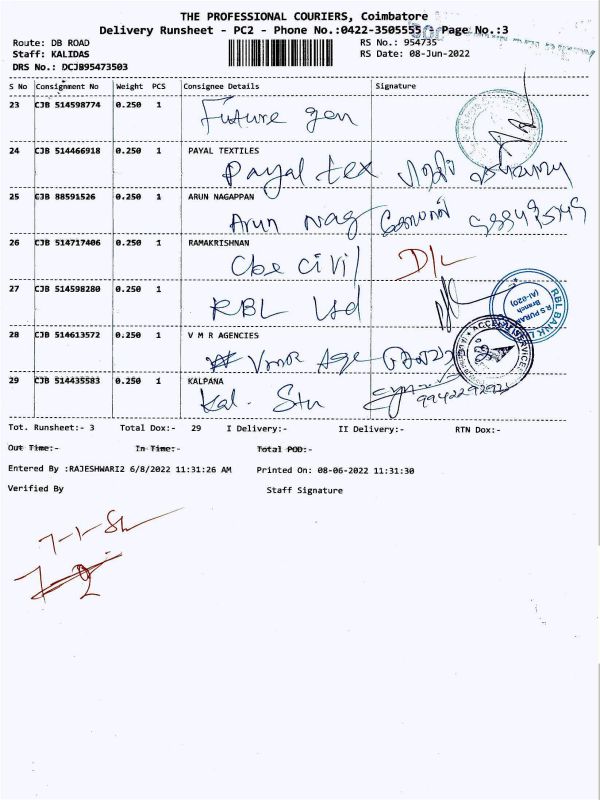 THE PROFESSIONAL COURIERS, Coimbatore
Delivery Runsheet - PC2 - Phone No.:0422-3505555 Page No.:3
Route: DB ROAD RS No.: 954735
Staff: KALIDAS RS Date: 08-Jun-2022
DRS No.: DCJB95473503
S No Consignment No Weight PCS Consignee Details Signature
23 CJB 514598774 0.250 1 Future gen
24 CJB 514466918 0.250 1 PAYAL TEXTILES
Payal tex
25 CJB 88591526 0.250 1 ARUN NAGAPPAN
Arun Nag
26 CJB 514717406 0.250 1 RAMAKRISHNAN
Cbe civil D/L
27 CJB 514598280 0.250 1
RBL Ltd
RBL BANK L
R S PURAM
Branch
(AI-020)
28 CJB 514613572 0.250 1 V M R AGENCIES
Vmr Age
29 CJB 514435583 0.250 1 KALPANA
Kal. Stu
Tot. Runsheet:- 3 Total Dox:- 29 I Delivery:- II Delivery:- RTN Dox:-
Out Time:- In Time:- Total POD:-
Entered By :RAJESHWARI2 6/8/2022 11:31:26 AM Printed On: 08-06-2022 11:31:30
Verified By Staff Signature